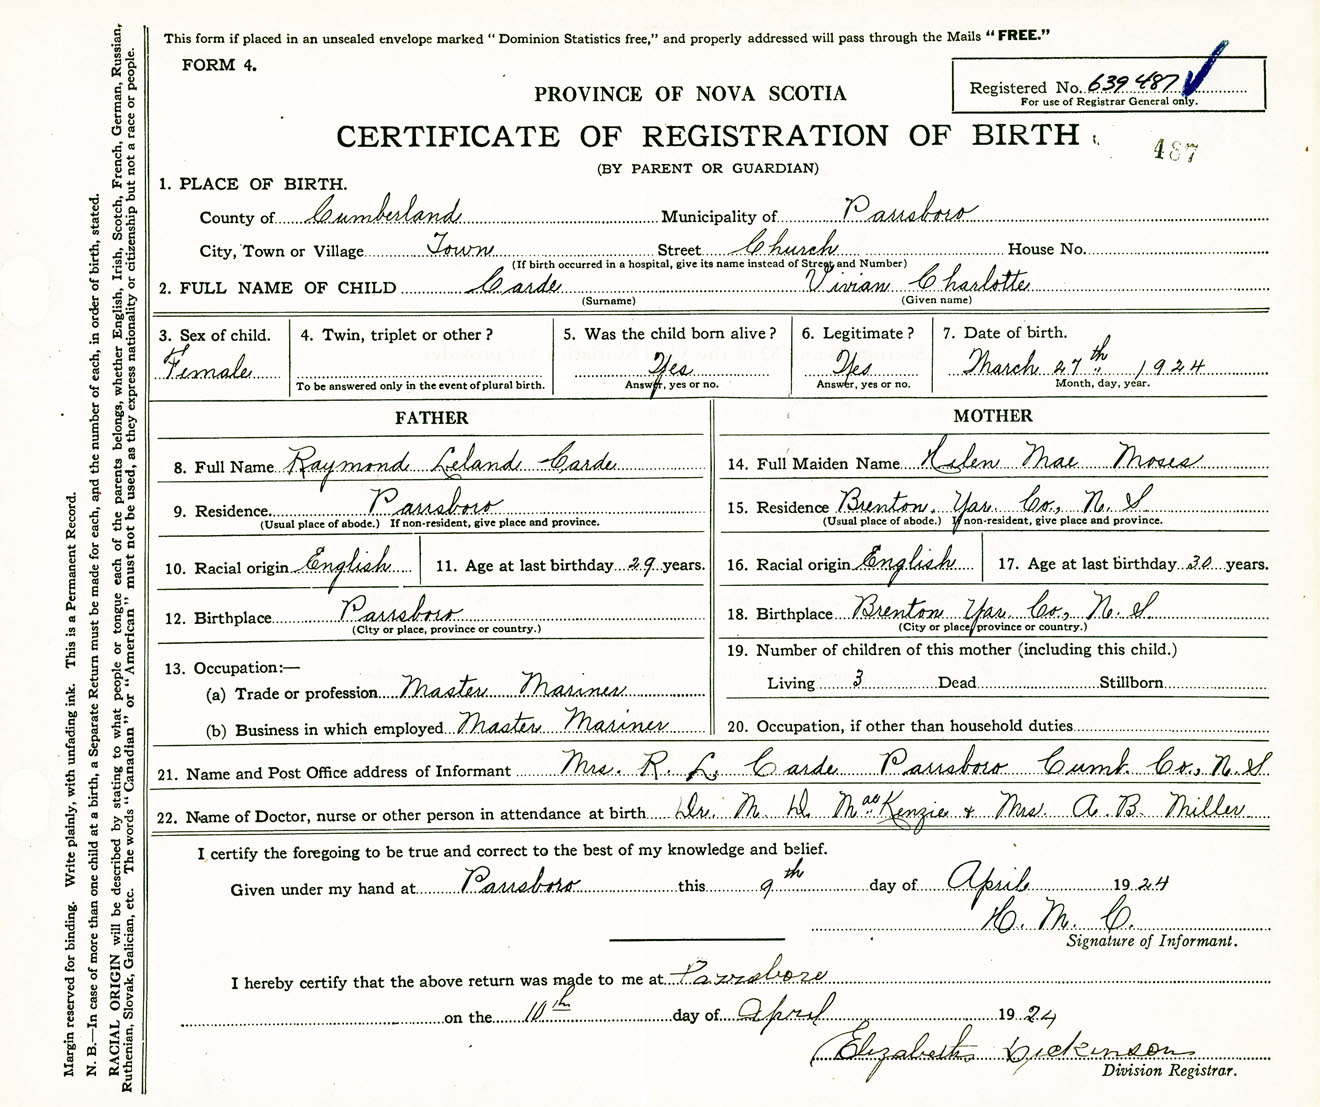 This form if placed in an unsealed envelope marked "Dominion Statistics free," and properly addressed will pass through the Mails "FREE."
FORM 4.
Registered No. 639487
For use of Registrar General only.
PROVINCE OF NOVA SCOTIA
CERTIFICATE OF REGISTRATION OF BIRTH
487
(BY PARENT OR GUARDIAN)
1. PLACE OF BIRTH.
County of Cumberland Municipality of Parrsboro
City, Town or Village Town Street Church House No.
(If birth occurred in a hospital, give its name instead of Street and Number)
2. FULL NAME OF CHILD Carde Vivian Charlotte
(Surname) (Given name)
3. Sex of child. 4. Twin, triplet or other? 5. Was the child born alive? 6. Legitimate? 7. Date of birth.
Female Yes Yes March 27th 1924
To be answered only in the event of plural birth. Answer, yes or no. Answer, yes or no. Month, day, year.
FATHER MOTHER
8. Full Name Raymond Leland Carde 14. Full Maiden Name Helen Mae Moses
9. Residence. Parrsboro 15. Residence Brenton, Yar. Co., N. S
(Usual place of abode.) If non-resident, give place and province. (Usual place of abode.) If non-resident, give place and province.
10. Racial origin English 11. Age at last birthday 29 years. 16. Racial origin English 17. Age at last birthday 30 years.
12. Birthplace Parrsboro 18. Birthplace Brenton Yar. Co., N. S.
(City or place, province or country.) (City or place, province or country.)
13. Occupation:— 19. Number of children of this mother (including this child.)
(a) Trade or profession Master Mariner Living 3 Dead Stillborn
(b) Business in which employed Master Mariner 20. Occupation, if other than household duties
21. Name and Post Office address of Informant Mrs. R. L. Carde Parrsboro Cumb. Co., N. S
22. Name of Doctor, nurse or other person in attendance at birth Dr. M. D. MacKenzie & Mrs. A. B. Miller
I certify the foregoing to be true and correct to the best of my knowledge and belief.
Given under my hand at Parrsboro this 9th day of April 1924
H. M. C.
Signature of Informant.
I hereby certify that the above return was made to me at Parrsboro
on the 10th day of April 1924
Elizabeth Dickinson
Division Registrar.
Margin reserved for binding. Write plainly, with unfading ink. This is a Permanent Record.
N. B.—In case of more than one child at a birth, a Separate Return must be made for each, and the number of each, in order of birth, stated.
RACIAL ORIGIN will be described by stating to what people or tongue each of the parents belongs, whether English, Irish, Scotch, French, German, Russian,
Ruthenian, Slovak, Galician, etc. The words "Canadian" or "American" must not be used, as they express nationality or citizenship but not a race or people.